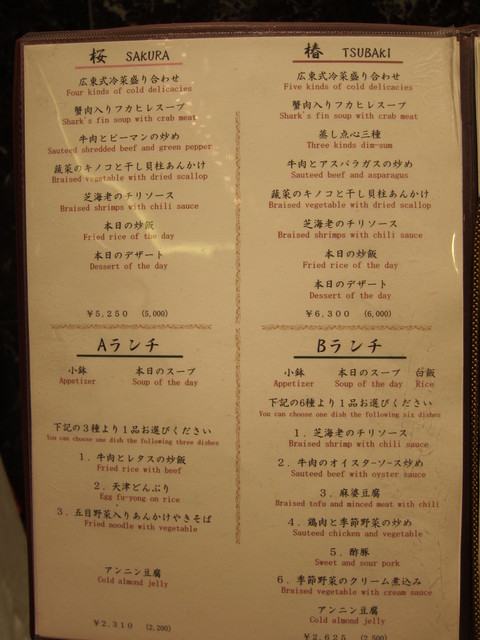 桜 SAKURA
広東式冷菜盛り合わせ
Four kinds of cold delicacies
蟹肉入りフカヒレスープ
Shark's fin soup with crab meat
牛肉とピーマンの炒め
Sauteed shredded beef and green pepper
蔬菜のキノコと干し貝柱あんかけ
Braised vegetable with dried scallop
芝海老のチリソース
Braised shrimps with chili sauce
本日の炒飯
Fried rice of the day
本日のデザート
Dessert of the day
￥5,250 (5,000)
椿 TSUBAKI
広東式冷菜盛り合わせ
Five kinds of cold delicacies
蟹肉入りフカヒレスープ
Shark's fin soup with crab meat
蒸し点心三種
Three kinds dim-sum
牛肉とアスパラガスの炒め
Sauteed beef and asparagus
蔬菜のキノコと干し貝柱あんかけ
Braised vegetable with dried scallop
芝海老のチリソース
Braised shrimps with chili sauce
本日の炒飯
Fried rice of the day
本日のデザート
Dessert of the day
￥6,300 (6,000)
Aランチ
小鉢 本日のスープ
Appetizer Soup of the day
下記の3種より1品お選びください
You can choose one dish the following three dishes
1．牛肉とレタスの炒飯
Fried rice with beef
2．天津どんぶり
Egg fu-yong on rice
3．五目野菜入りあんかけやきそば
Fried noodle with vegetable
アンニン豆腐
Cold almond jelly
￥2,310 (2,200)
Bランチ
小鉢 本日のスープ 白飯
Appetizer Soup of the day Rice
下記の6種より1品お選びください
You can choose one dish the following six dishes
1．芝海老のチリソース
Braised shrimp with chili sauce
2．牛肉のオイスターソース炒め
Sauteed beef with oyster sauce
3．麻婆豆腐
Braised tofu and minced meat with chili
4．鶏肉と季節野菜の炒め
Sauteed chicken and vegetable
5．酢豚
Sweet and sour pork
6．季節野菜のクリーム煮込み
Braised vegetable with cream sauce
アンニン豆腐
Cold almond jelly
￥2,625 (2,500)